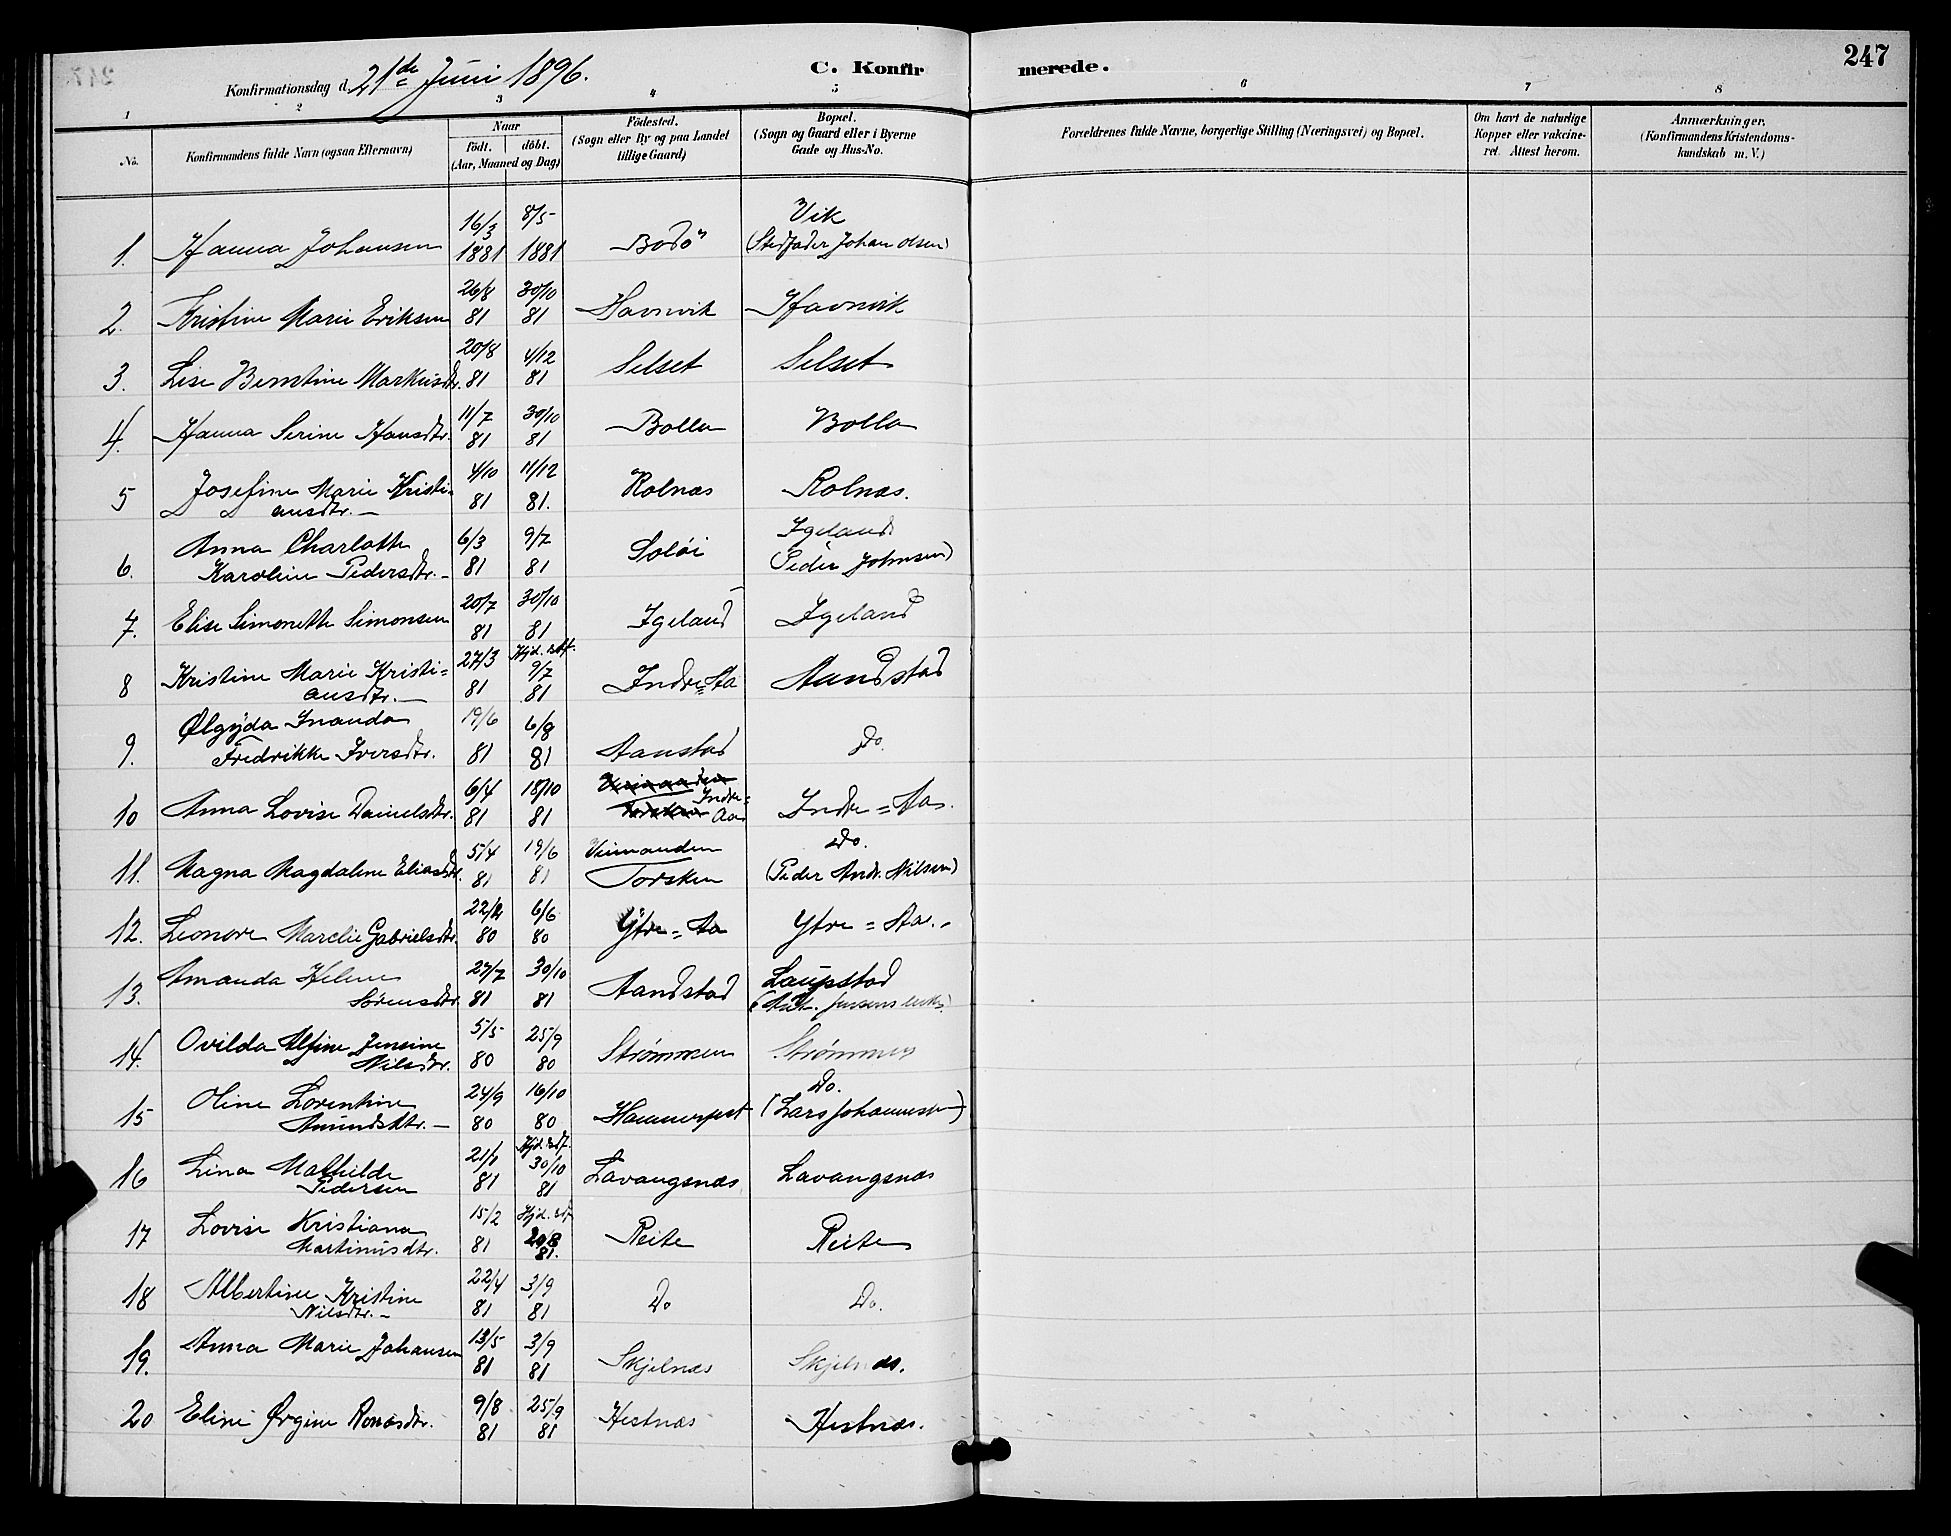 247
Konfirmationsdag d. 21de Juni 1896.
C. Konfirmerede.
1 2 3 4 5 6 7 8
No.
Konfirmandens fulde Navn (ogsaa Efternavn)
Naar
födt. döbt.
(Aar, Maaned og Dag)
Födested.
(Sogn eller By og paa Landet
tillige Gaard)
Bopæl.
(Sogn og Gaard eller i Byerne
Gade og Hus-No.
Forældrenes fulde Navne, borgerlige Stilling (Næringsvei) og Bopæl.
Om havt de naturlige
Kopper eller vakcine-
ret. Attest herom.
Anmærkninger.
(Konfirmandens Kristendoms-
kundskab m. V.)
1. Hanna Johansen 16/3 1881 8/5 1881 Bodö Vik
(Stedfader Johan Olsen)
2. Kristine Marie Eriksen 26/8 81 30/10 81 Havnvik Havnvik
3. Lise Berntine Markusdtr. 20/8 81 4/12 81 Selset Selset
4. Hanna Serine Hansdtr. 11/7 81 30/10 81 Bolla Bolla
5 Josefine Marie Kristi-
ansdtr. 4/10 81 11/12 81. Rolnæs Rolnæs.
6. Anna Charlotte
Karoline Pedersdtr. 6/3 81 9/7 81 Soløi Igeland
(Peder Johnsen)
7. Elise Simonette Simonsen 20/7 81 30/10 81 Igeland Igeland
8 Kristine Marie Kristi=
ansdtr. 27/3 81 Hjd. stf. 9/7 81 Indre=Aa Aandstad
9. Ølgyda Inanda
Fredrikke Iversdtr. 19/6 81 6/8 81 Aanstad Do.
10 Anna Lovise Danielsdtr. 6/4 81 18/10 81 Indre=
Aa Indre=Aa.
11. Magna Magdalene Eliasdtr. 5/4 81 19/6 81 Veimanden
Torsken Do.
(Peder Andr. Nilsen)
12. Leonore Marelie Gabrielsdtr. 80 6/6 80 Ytre=Aa Ytre=Aa.
13. Amanda Helene
Sørensdtr. 27/7 81 30/10 81 Aandstad Laupstad
14. Ovilda Alfine Jensine
Nilsdtr. 5/5 80 25/9 80 Strømmen Strømmen
15 Oline Lorentine
Amundsdtr. 24/9 80 16/10 80 Do.
(Lars Johannessen)
16 Lina Mathilde
Pedersen 81 Hjd. stf. 30/10 81 Lavangsnæs Lavangsnæs
17 Lovise Kristiana
Martinusdtr. 15/2 81 Hjd. stf. 20/8 81. Reite Reite
18 Albertine Kristine
Nilsdtr. 22/4 81 3/9 81 Do Do.
19. Anna Marie Johansen 13/5 81 3/9 81 Skjelnæs Skjelnæs.
20 Eline Ørgine Ronasdtr. 9/8 81 25/9 81 Hestnæs Hestnæs.